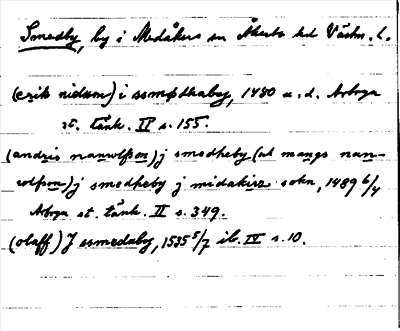 Smedby, by i Medåkers sn Åkerbo hd Västm. l.
(erik nidzson) i ssmødhaby, 1480 u. d. Arboga
st. tänk. II s. 155.
(andris nanwlfson) j smedheby (ad mangs nan-
wlfson) j smedheby j midakirz sokn, 1489 6/4
Arboga st. tänk. II s. 349.
(olaff) J ssmedaby, 1535 5/7 ib. IV s. 10.